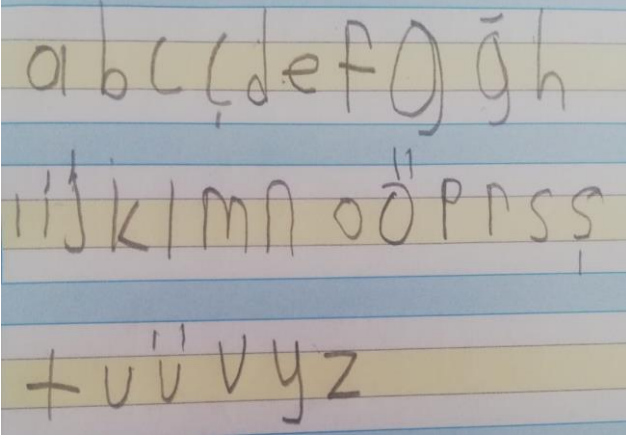 a b c ç d e f g ğ h
ı i j k l m n o ö p r s ş
t u ü v y z